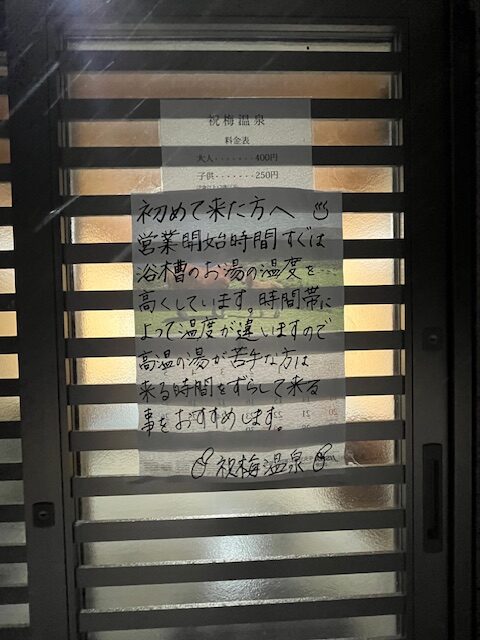 祝梅温泉
料金表
大人・・・・・・・400円
子供・・・・・・・250円
初めて来た方へ ♨
営業開始時間すぐは
浴槽のお湯の温度を
高くしています。時間帯に
よって温度が違いますので
高温の湯が苦手な方は
来る時間をずらして来る
事をおすすめします。
祝梅温泉